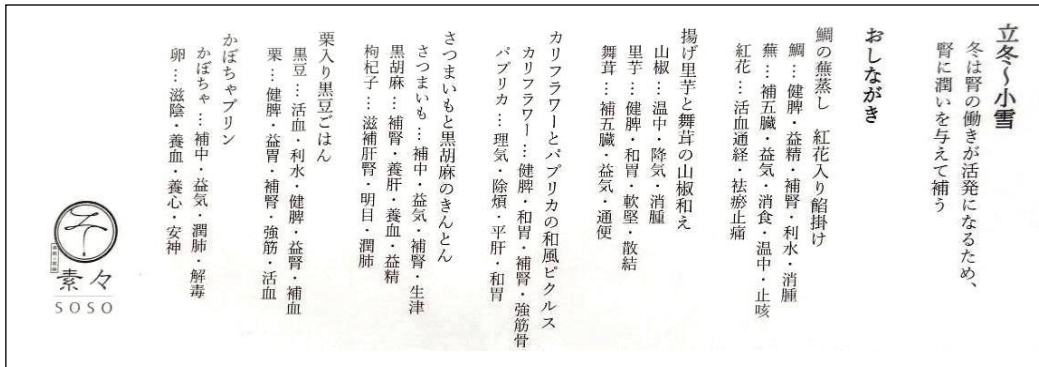 立冬〜小雪
冬は腎の働きが活発になるため、
腎に潤いを与えて補う
おしながき
鯛の蕪蒸し　紅花入り餡掛け
鯛…健脾・益精・補腎・利水・消腫
蕪…補五臓・益気・消食・温中・止咳
紅花…活血通経・祛瘀止痛
揚げ里芋と舞茸の山椒和え
山椒…温中・降気・消腫
里芋…健脾・和胃・軟堅・散結
舞茸…補五臓・益気・通便
カリフラワーとパプリカの和風ピクルス
カリフラワー…健脾・和胃・補腎・強筋骨
パプリカ…理気・除煩・平肝・和胃
さつまいもと黒胡麻のきんとん
さつまいも…補中・益気・補腎・生津
黒胡麻…補腎・養肝・養血・益精
枸杞子…滋補肝腎・明目・潤肺
栗入り黒豆ごはん
黒豆…活血・利水・健脾・益腎・補血
栗…健脾・益胃・補腎・強筋・活血
かぼちゃプリン
かぼちゃ…補中・益気・潤肺・解毒
卵…滋陰・養血・養心・安神
素々
SOSO